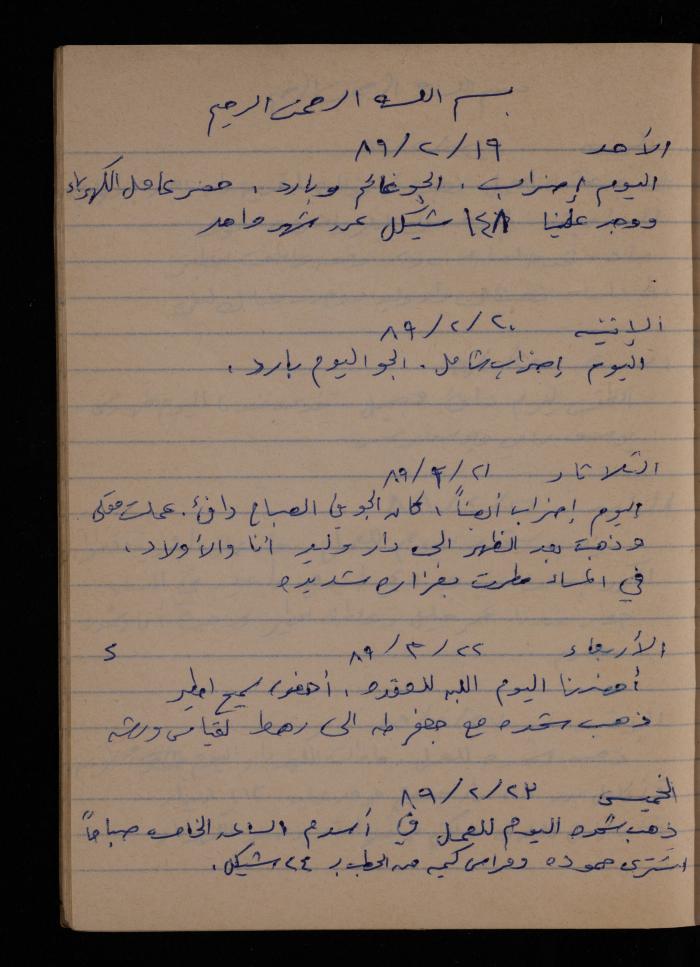 بسم الله الرحمن الرحيم
الأحد ١٩/٢/٨٩
اليوم إضراب . الجو غائم وبارد . حضر عامل الكهرباء
ووجد علينا ١٤٨ شيكل عدد شهر واحد
الإثنين ٢٠/٢/٨٩
اليوم إضراب شامل . الجو اليوم بارد .
الثلاثاء ٢١/٢/٨٩
اليوم إضراب أيضاً ، كان الجو في الصباح دافئ . عملت
وذهبت بعد الظهر الى دار وليد أنا والأولاد .
في المساء مطرت بغزاره شديده
الأربعاء ٢٢/٣/٨٩ ٤
أحضرنا اليوم اللبن للعقده ، سميح
ذهب شحده مع جعفر طه الى رهط لقياس ورشه
الخميس ٢٣/٢/٨٩
ذهب شحده اليوم للعمل في أسدود الساعه الخامسه صباحاً
اشترى حموده وفراس كميه من الحطب بـ ٢٤ شيكل .